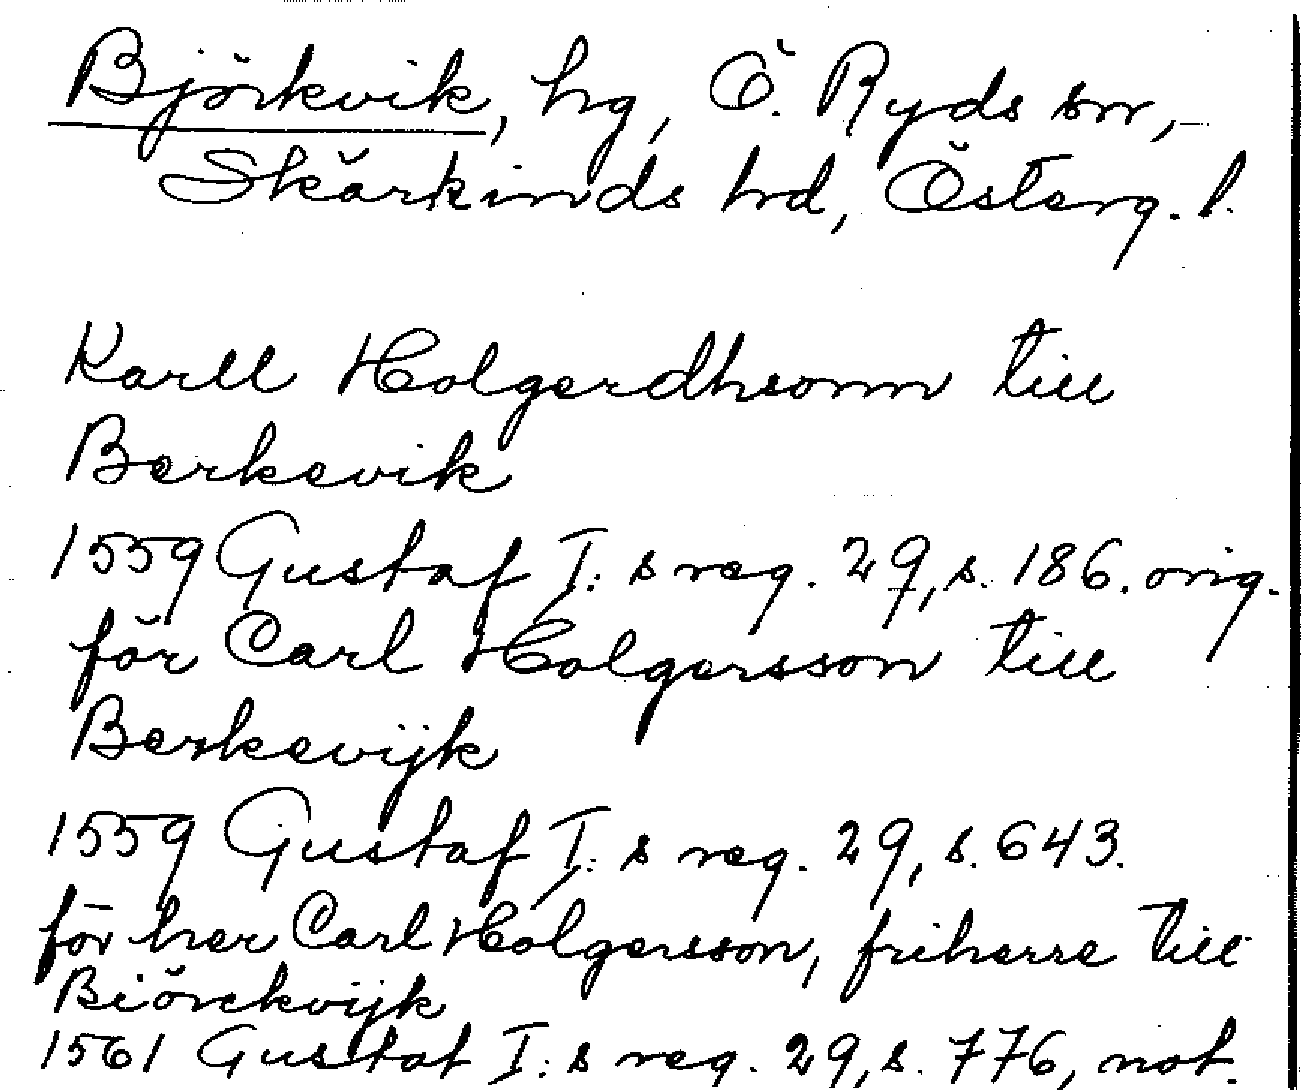 Björkvik, hg, Ö. Ryds sn,
Skärkinds hd, Österg. l.
Karll Holgerdhsonn till
Berkevik
1559 Gustaf I:s reg. 29, s. 186. orig.
för Carl Holgersson till
Berkevijk
1559 Gustaf I:s reg. 29, s. 643.
för her Carl Holgersson, friherre till
Biörckvijk
1561 Gustaf I:s reg. 29, s. 776, not.